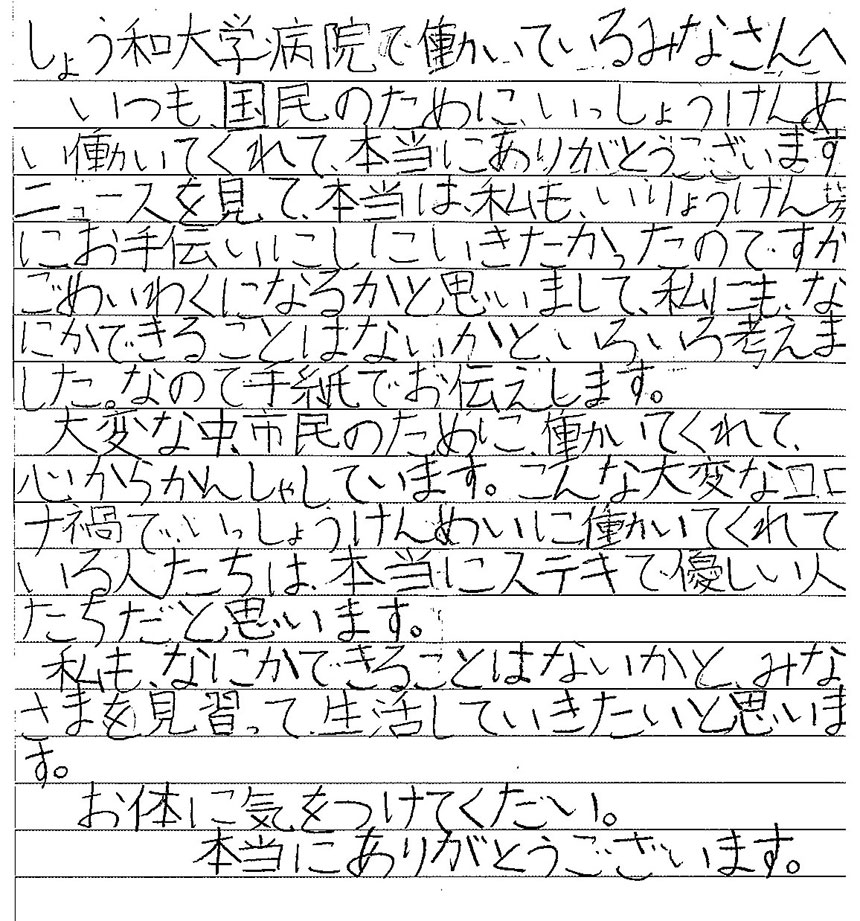 しょう和大学病院で働いているみなさんへ
いつも、国民のために、いっしょうけんめ
い働いてくれて、本当にありがとうございます
ニュースを見て、本当は、私も、いりょうけん場
にお手伝いにしにいきたかったのですが
ごめいわくになるかと思いまして、私にも、な
にかできることはないかと、いろいろ考えま
した。なので手紙でお伝えします。
大変な中、市民のために、働いてくれて、
心からかんしゃしています。こんな大変なコロ
ナ禍で、いっしょうけんめいに働いてくれて
いる人たちは、本当にステキで優しい人
たちだと思います。
私も、なにかできることはないかと、みな
さまを見習って、生活していきたいと思いま
す。
お体に気をつけてくだい。
本当にありがとうございます。